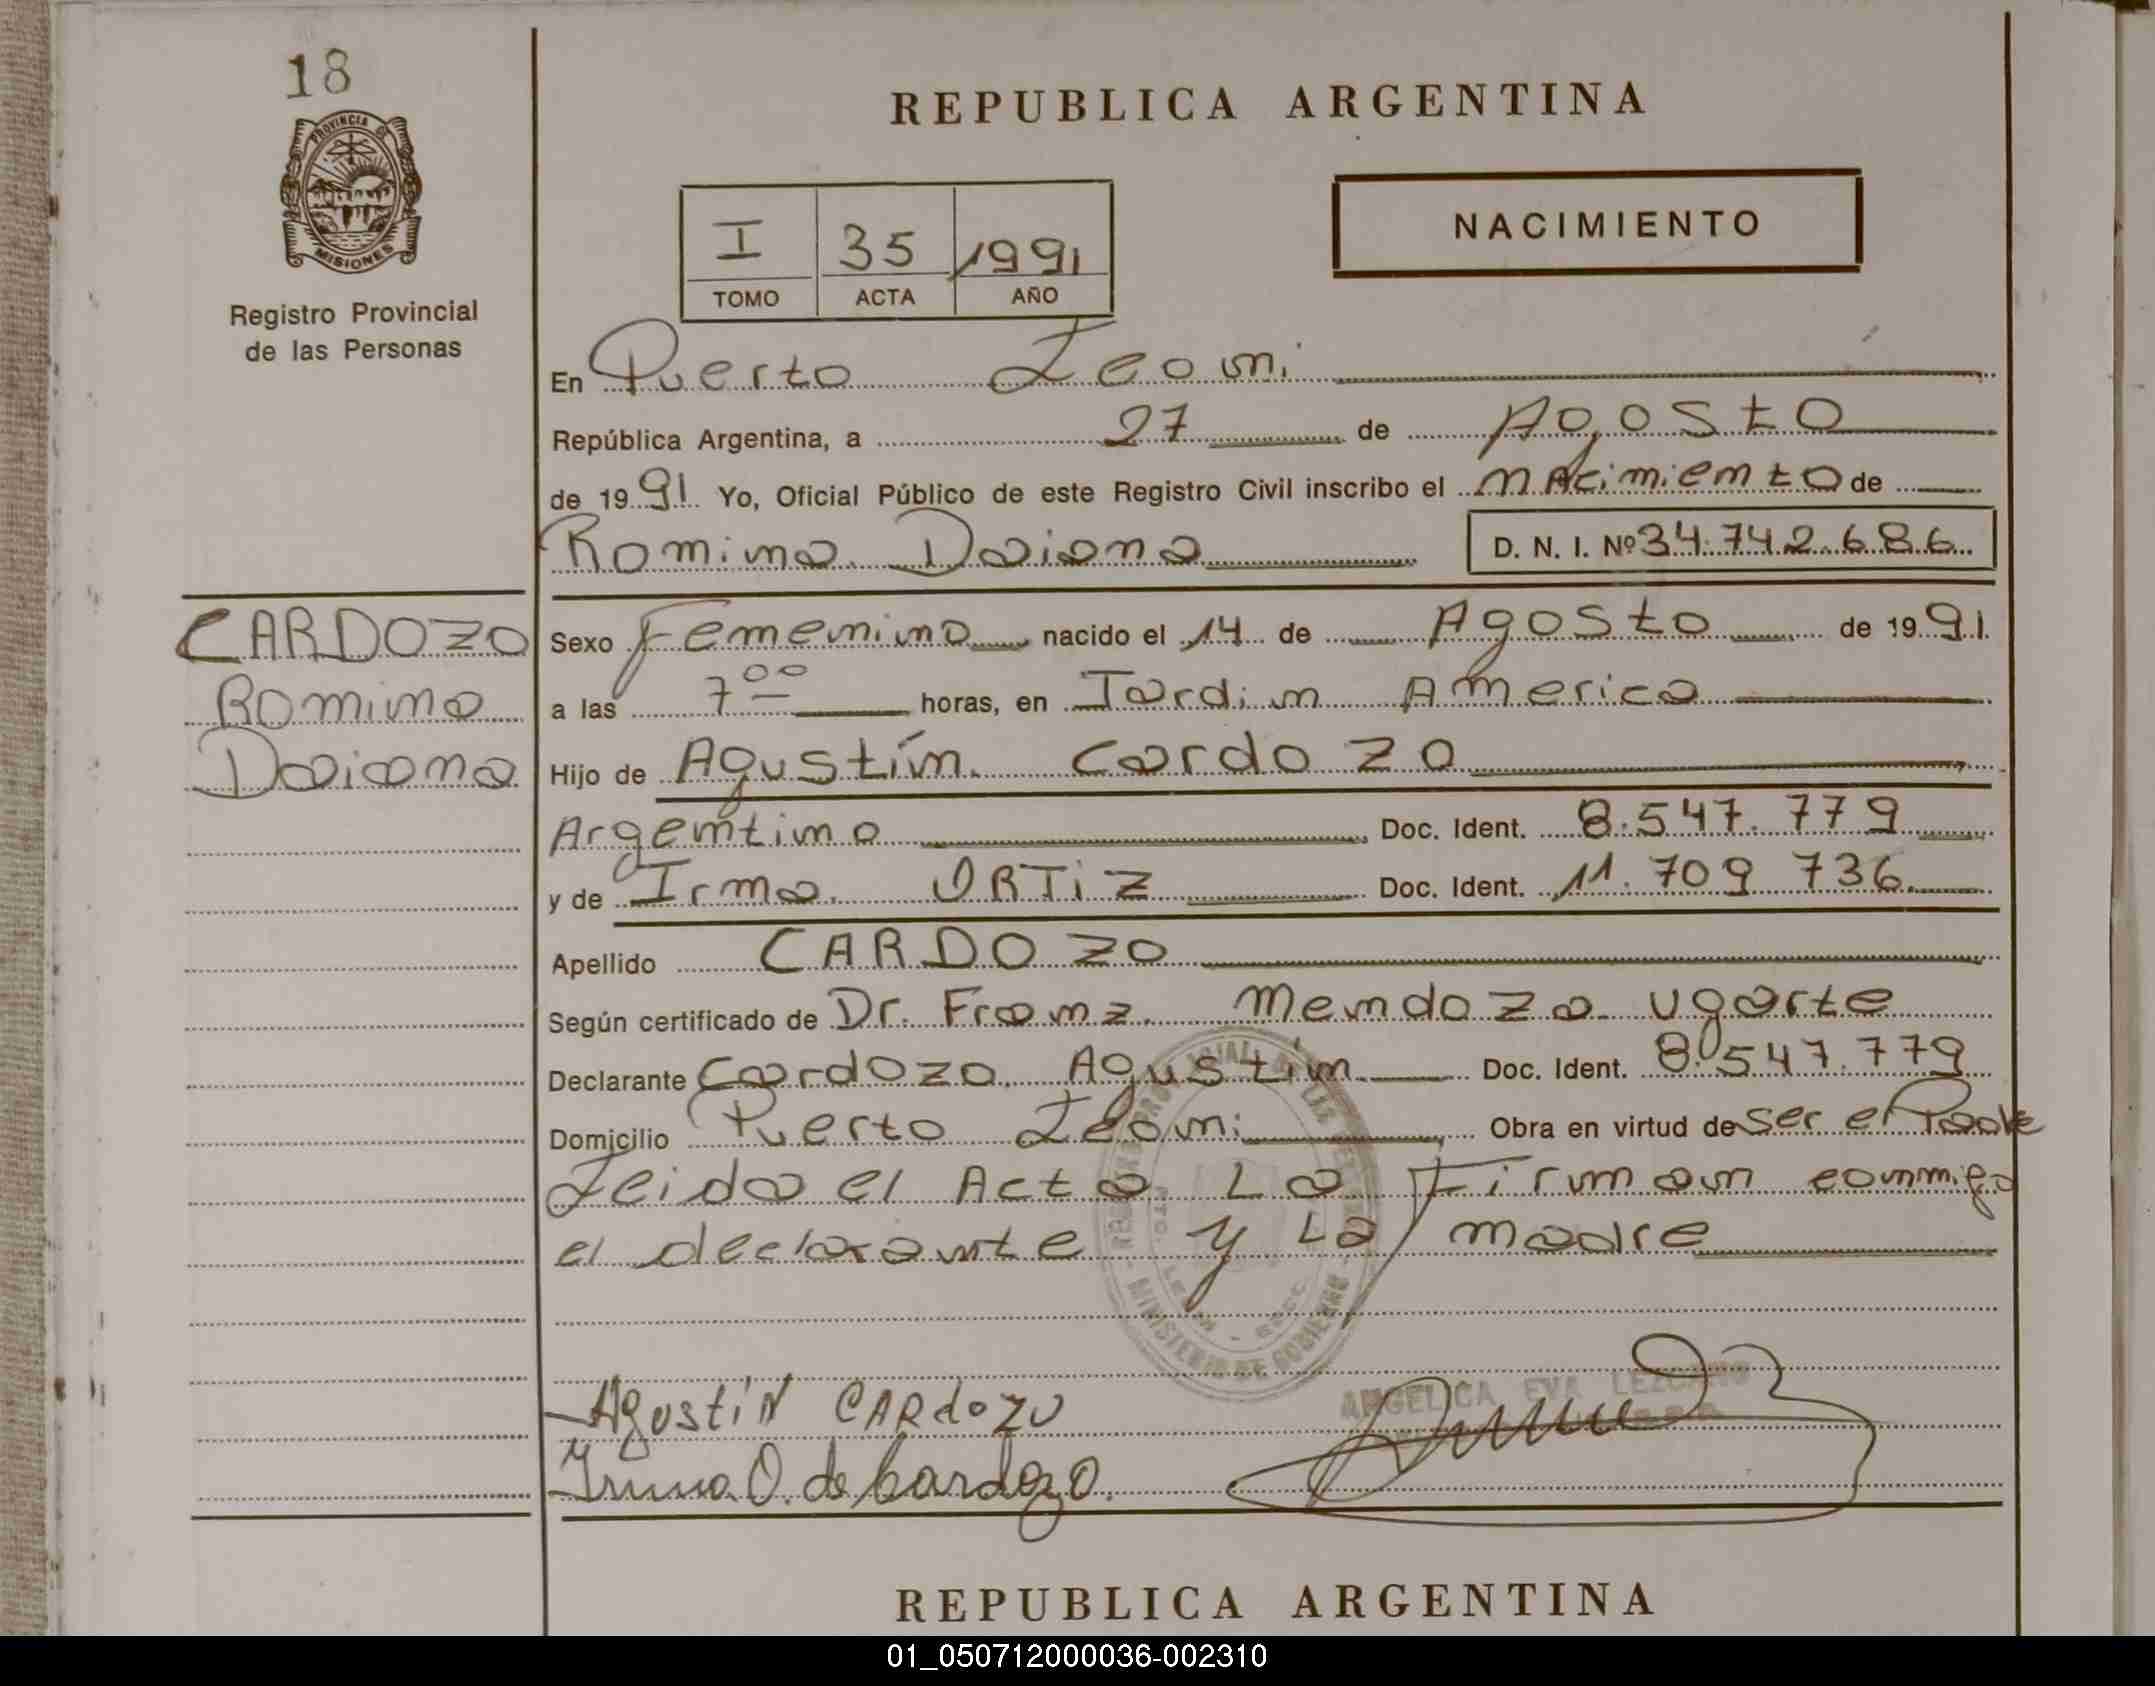 18
PROVINCIA DE
MISIONES
Registro Provincial
de las Personas
REPUBLICA ARGENTINA
NACIMIENTO
I 35 1991
TOMO ACTA AÑO
En Puerto Leoni
República Argentina, a 27 de Agosto
de 1991 Yo, Oficial Público de este Registro Civil inscribo el nacimiento de
Romina Daiana D. N. I. Nº 34.742.686
CARDOZO
Romina
Daiana
Sexo Femenino nacido el 14 de Agosto de 1991
a las 7 00 horas, en Jardin America
Hijo de Agustín Cardozo
Argentino Doc. Ident. 8.547.779
y de Irma ORTiZ Doc. Ident. 11.709 736
Apellido CARDOZO
Según certificado de Dr. Franz Mendoza Ugarte
Declarante Cardozo Agustin Doc. Ident. 8.547.779
Domicilio Puerto Leoni Obra en virtud de ser el Padre
Leida el Acta La Firman conmigo
el declarante y La madre
MINISTERIO DE GOBIERNO
ANGELICA EVA LEZCANO
Agustín CARdozo
Irma O. de Cardozo.
REPUBLICA ARGENTINA
01_050712000036-002310